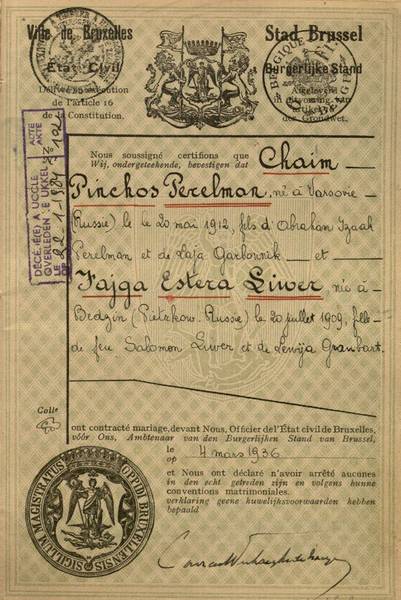 Ville de Bruxelles
Etat Civil
Délivré en exécution
de l'article 16
de la Constitution.
Stad Brussel
Burgerlijke Stand
Afgeleverd
in uitvoering van
artikel 16
der Grondwet.
Nous soussigné certifions que
Wij, ondergeteekende, bevestigen dat
Chaim
Pinchos Perelman, né à Varsovie
(Russie) le 20 mai 1912, fils d'Abraham Izaak
Perelman et de Haja Garbornik et
Fajga Estera Liwer, née à
Bedzin (Piotrkow. Russie) le 20 juillet 1909, fille
de feu Salomon Liwer et de Grambart.
DÉCÉDÉ(E) A UCCLE
OVERLEDEN TE UKKEL
LE
OP
22-1-1984
ACTE
AKTE
Colle
ont contracté mariage, devant Nous, Officier de l'État civil de Bruxelles,
vóór Ons, Ambtenaar van den Burgerlijken Stand van Brussel,
le
op
4 mars 1936
et Nous ont déclaré n'avoir arrêté aucunes
in den echt getreden zijn en volgens hunne
conventions matrimoniales.
verklaring geene huwelijksvoorwaarden hebben
bepaald
SIGILLUM MAGISTRATUS OPPIDI BRUXELLENSIS